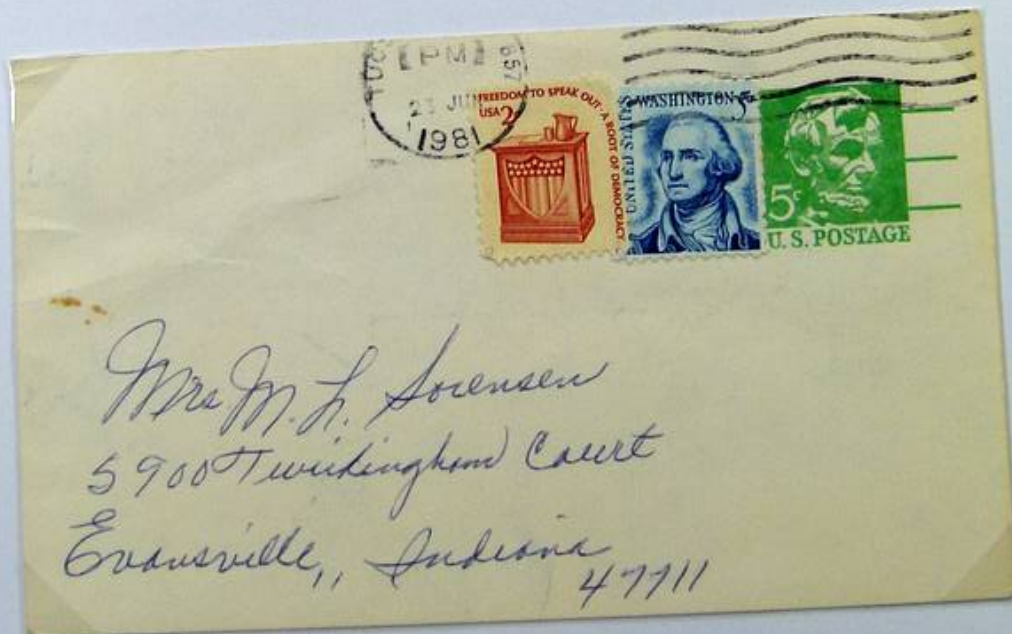 PM
857
23 JUN
1981
FREEDOM TO SPEAK OUT · A ROOT OF DEMOCRACY
USA 2
UNITED STATES
WASHINGTON 5¢
5¢
U. S. POSTAGE
Mrs M. L. Sorensen
5900 Court
Evansville,, Indiana
47711